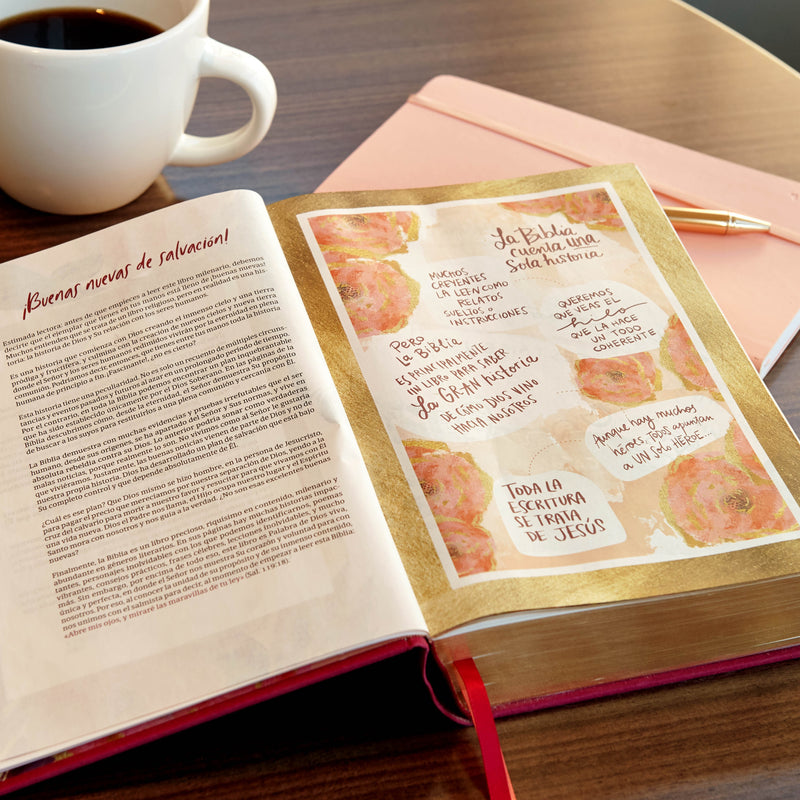 ¡Buenas nuevas de salvación!
Estimada lectora: antes de que empieces a leer este libro milenario, debemos
decirte que el ejemplar que tienes en tus manos está lleno de ¡buenas nuevas!
Muchos entienden que se trata de un libro religioso, pero en realidad es una his-
toria: la historia de Dios y Su relación con los seres humanos.
Es una historia que comienza con Dios creando el inmenso cielo y una tierra
pródiga y fructífera, y culmina con la creación de nuevos cielos y nueva tierra
donde el Señor y los seres humanos redimidos vivirán por la eternidad en plena
comunión. Podríamos decir, entonces, que tienes en tus manos toda la historia
humana de principio a fin. ¡Fascinante!, ¿no es cierto?
Esta historia tiene una peculiaridad. No es solo un recuento de múltiples circuns-
tancias y eventos pasados y futuros al azar en un prolongado periodo de tiempo.
Por el contrario, en toda la Biblia podemos encontrar un plan inquebrantable
que ha sido establecido únicamente por el Dios Soberano. En las páginas de la
Biblia descubrimos cómo, desde el inicio, el Señor demuestra Su propósito
de buscar a los suyos para restituirlos a una plena comunión y cercanía con Él.
La Biblia demuestra con muchas evidencias y pruebas irrefutables que el ser
humano, desde sus orígenes, se ha apartado del Señor y sus caminos, y vive en
absoluta rebeldía contra su Dios. Lo anterior podría sonar como verdaderas
malas noticias, porque realmente lo son. No vivimos como al Señor le gustaría
que viviéramos. Justamente, las buenas noticias vienen de parte de Dios y no de
nuestra propia historia. Dios ha desarrollado un plan de salvación que está bajo
Su completo control y que depende absolutamente de Él.
¿Cuál es ese plan? Que Dios mismo se hizo hombre, en la persona de Jesucristo,
para pagar el precio que merecíamos por nuestra separación de Dios, yendo a la
cruz del calvario para morir a nuestro favor y resucitar para que vivamos con Él
una vida nueva. Dios el Padre nos llama, el Hijo ocupa nuestro lugar y el Espíritu
Santo mora con nosotros y nos guía a la verdad. ¿No son esas excelentes buenas
nuevas?
Finalmente, la Biblia es un libro precioso, riquísimo en contenido, milenario y
abundante en géneros literarios. En sus páginas hay muchas historias impac-
tantes, personajes inolvidables con los que podemos identificarnos, poesías
vibrantes, consejos prácticos, frases célebres, lecciones inolvidables, y mucho
más. Sin embargo, por encima de todo eso, este libro es Palabra de Dios viva,
única y perfecta, en donde el Señor nos muestra Su corazón y voluntad para con
nosotros. Por eso, al conocer la unidad de su propósito y de su inmenso contenido,
nos unimos con el salmista para decir, al momento de empezar a leer esta Biblia,
«Abre mis ojos, y miraré las maravillas de tu ley» (Sal. 119:18).
La Biblia
cuenta una
Sola historia
MUCHOS
CREYENTES
LA LEEN COMO
RELATOS
SUELTOS o
INSTRUCCIONES
QUEREMOS
QUE VEAS EL
hilo
QUE LA HACE
UN TODO
COHERENTE
Pero
La Biblia
ES PRINCIPALMENTE
UN LIBRO PARA SABER
La GRAN historia
DE CÓMO DIOS VINO
HACIA NOSOTROS
Aunque hay muchos
héroes, TODOS apuntan
a UN SOLO HÉROE...
TODA LA
ESCRITURA
SE TRATA
DE JESÚS